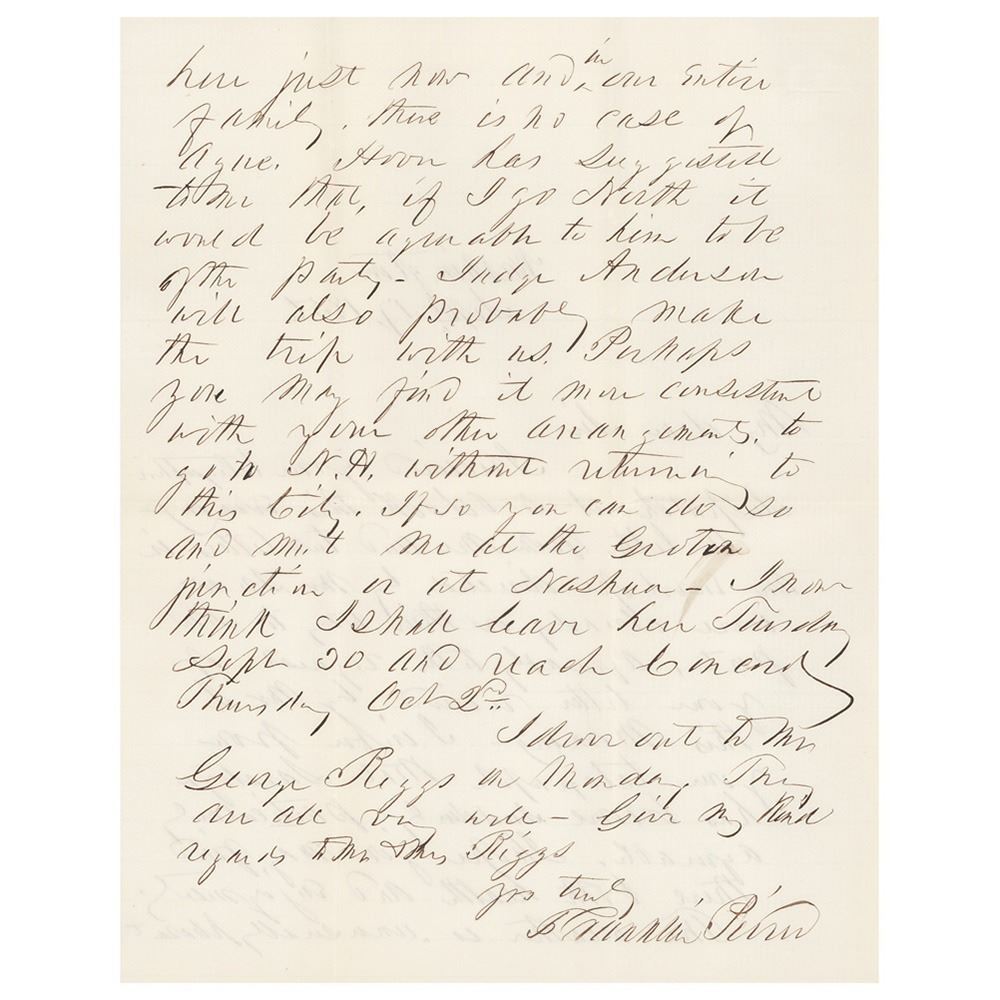 here just now and in our entire
family, there is no case of
Ague. Hoover has suggested
to me that, if I go North it
would be agreeable to him to be
of the party – Judge Anderson
will also probably make
the trip with us. Perhaps
you may find it more consistent
with your other arrangements, to
go to N.H. without returning to
this City. If so you can do so
and meet me at the Groton
junction or at Nashua – I now
think I shall leave here Tuesday
Sept 30 and reach Concord
Thursday Oct 2nd.
I drove out to Mr
George Riggs on Monday. They
are all very well – Give my kind
regards to Mr & Mrs Riggs
yrs truly
Franklin Pierce